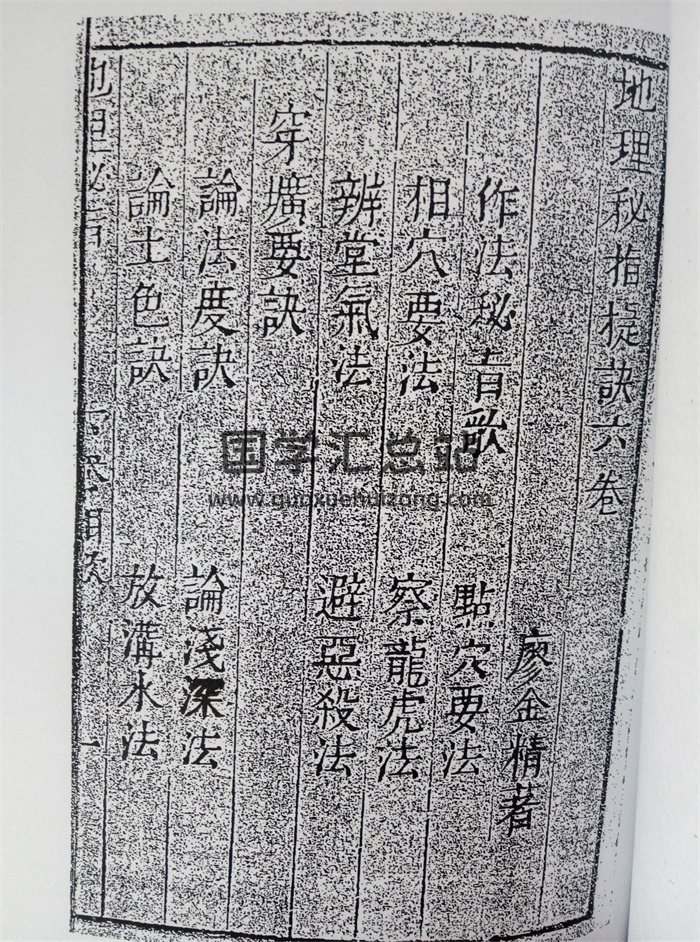 地理秘指㨗訣六卷
廖金精著
作法秘旨歌　點穴要法
相穴要法　察龍虎法
辨堂氣法　避惡殺法
穿壙要訣
論法度訣　論淺深法
論土色訣　放溝水法
地理秘旨　卷目次　一
国学汇总站
www.guoxuehuizong.com